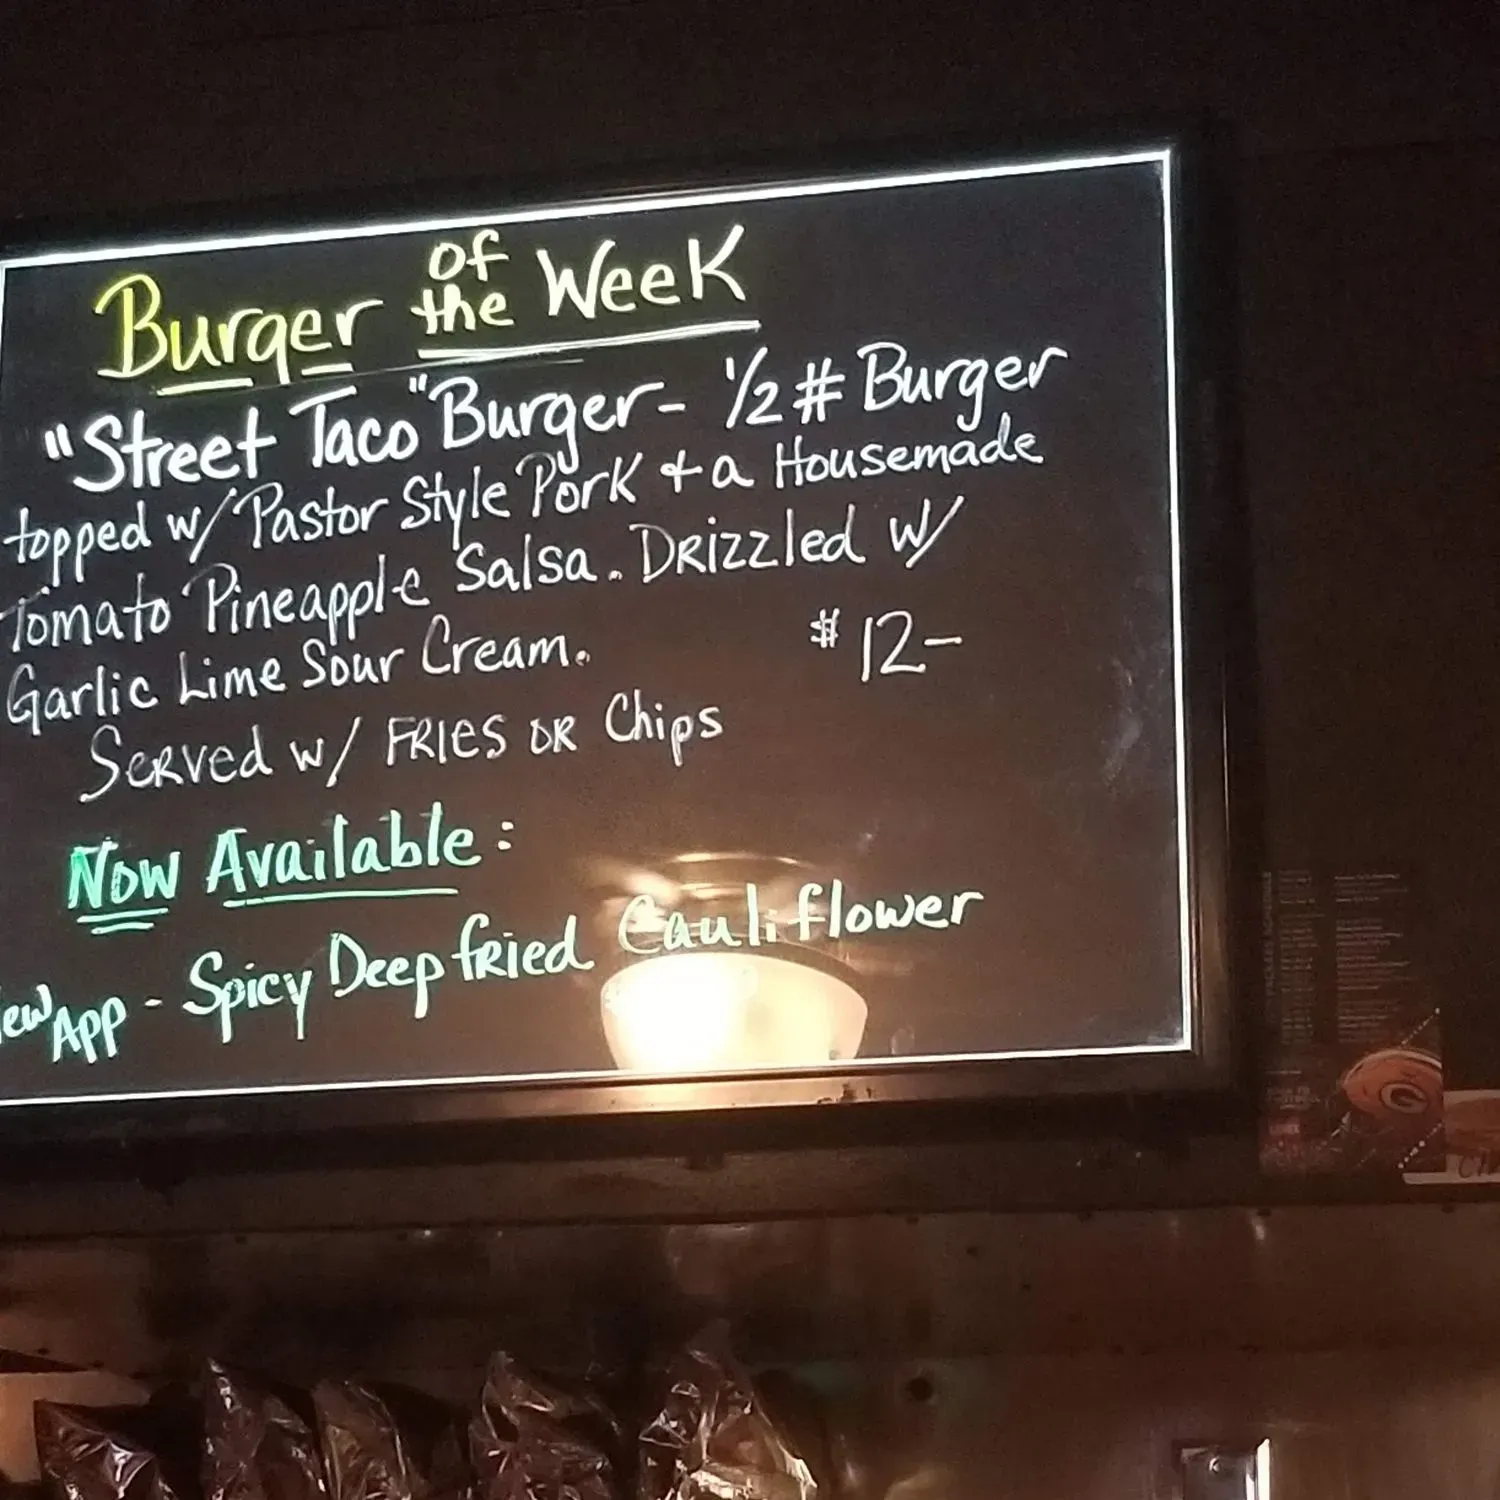 Burger of the Week
"Street Taco" Burger - 1/2 # Burger
topped w/ Pastor Style Pork + a Housemade
Tomato Pineapple Salsa. Drizzled w/
Garlic Lime Sour Cream. $12-
Served w/ FRIES OR Chips
Now Available:
App - Spicy Deep fried Cauliflower
G